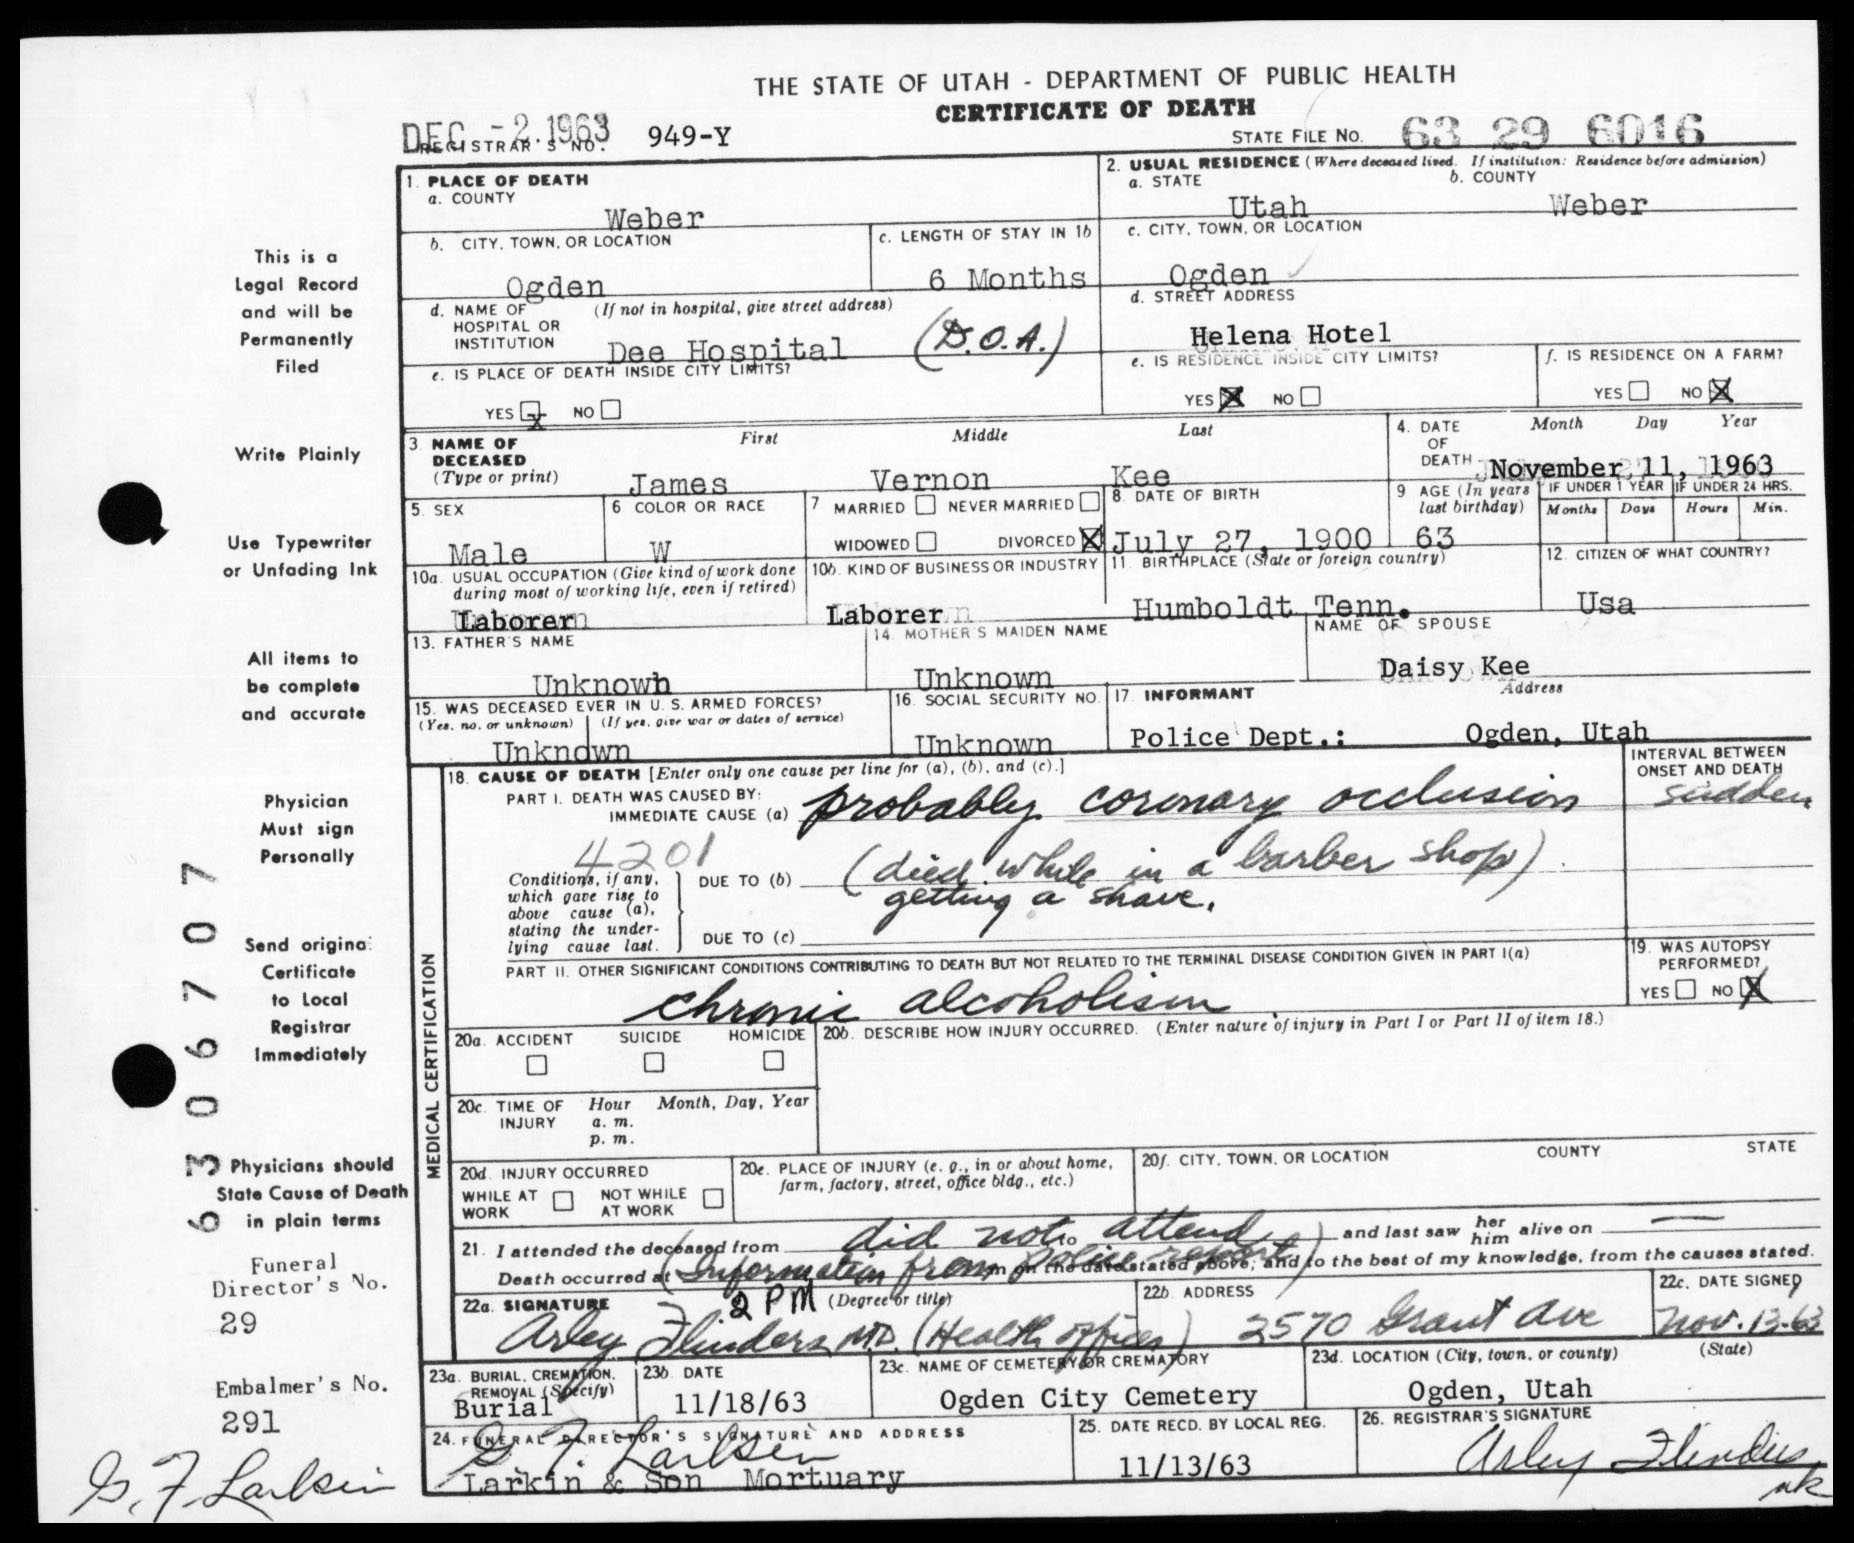 THE STATE OF UTAH - DEPARTMENT OF PUBLIC HEALTH
CERTIFICATE OF DEATH
DEC -2.1963
REGISTRAR'S NO. 949-Y
STATE FILE NO. 63 29 6016
1. PLACE OF DEATH
a. COUNTY
Weber
2. USUAL RESIDENCE (Where deceased lived. If institution: Residence before admission)
a. STATE b. COUNTY
Utah Weber
b. CITY, TOWN, OR LOCATION
Ogden
c. LENGTH OF STAY IN 1b
6 Months
c. CITY, TOWN, OR LOCATION
Ogden
d. NAME OF HOSPITAL OR INSTITUTION (If not in hospital, give street address)
Dee Hospital (D.O.A.)
d. STREET ADDRESS
Helena Hotel
e. IS PLACE OF DEATH INSIDE CITY LIMITS?
YES X NO
e. IS RESIDENCE INSIDE CITY LIMITS?
YES X NO
f. IS RESIDENCE ON A FARM?
YES NO X
3. NAME OF DECEASED (Type or print)
First Middle Last
James Vernon Kee
4. DATE OF DEATH Month Day Year
November 11, 1963
5. SEX
Male
6 COLOR OR RACE
W
7 MARRIED NEVER MARRIED
WIDOWED DIVORCED X
8. DATE OF BIRTH
July 27, 1900
9 AGE (In years last birthday)
63
IF UNDER 1 YEAR
Months Days
IF UNDER 24 HRS.
Hours Min.
10a. USUAL OCCUPATION (Give kind of work done during most of working life, even if retired)
Laborer
10b. KIND OF BUSINESS OR INDUSTRY
Laborer
11. BIRTHPLACE (State or foreign country)
Humboldt Tenn.
12. CITIZEN OF WHAT COUNTRY?
Usa
13. FATHER'S NAME
Unknown
14. MOTHER'S MAIDEN NAME
Unknown
NAME OF SPOUSE
Daisy Kee
15. WAS DECEASED EVER IN U. S. ARMED FORCES?
(Yes, no, or unknown) (If yes, give war or dates of service)
Unknown
16. SOCIAL SECURITY NO.
Unknown
17. INFORMANT Address
Police Dept.: Ogden, Utah
MEDICAL CERTIFICATION
18. CAUSE OF DEATH [Enter only one cause per line for (a), (b), and (c).]
INTERVAL BETWEEN ONSET AND DEATH
PART I. DEATH WAS CAUSED BY:
IMMEDIATE CAUSE (a) probably coronary occlusion
sudden
4201
Conditions, if any, which gave rise to above cause (a), stating the underlying cause last.
DUE TO (b) (died while in a barber shop)
getting a shave.
DUE TO (c)
PART II. OTHER SIGNIFICANT CONDITIONS CONTRIBUTING TO DEATH BUT NOT RELATED TO THE TERMINAL DISEASE CONDITION GIVEN IN PART I(a)
chronic alcoholism
19. WAS AUTOPSY PERFORMED?
YES NO X
20a. ACCIDENT SUICIDE HOMICIDE
20b. DESCRIBE HOW INJURY OCCURRED. (Enter nature of injury in Part I or Part II of item 18.)
20c. TIME OF INJURY Hour Month, Day, Year
a. m.
p. m.
20d. INJURY OCCURRED
WHILE AT WORK NOT WHILE AT WORK
20e. PLACE OF INJURY (e. g., in or about home, farm, factory, street, office bldg., etc.)
20f. CITY, TOWN, OR LOCATION COUNTY STATE
21. I attended the deceased from did not attend to and last saw her him alive on —
Death occurred at (Information from police report) m on the date stated above, and to the best of my knowledge, from the causes stated.
2 PM
22a. SIGNATURE (Degree or title)
Arley Flinders M.D. (Health officer)
22b. ADDRESS
2570 Grant Ave
22c. DATE SIGNED
Nov. 13-63
23a. BURIAL, CREMATION, REMOVAL (Specify)
Burial
23b. DATE
11/18/63
23c. NAME OF CEMETERY OR CREMATORY
Ogden City Cemetery
23d. LOCATION (City, town, or county) (State)
Ogden, Utah
24. FUNERAL DIRECTOR'S SIGNATURE AND ADDRESS
G. F. Larkin
Larkin & Son Mortuary
25. DATE RECD. BY LOCAL REG.
11/13/63
26. REGISTRAR'S SIGNATURE
Arley Flinders
nk
This is a
Legal Record
and will be
Permanently
Filed
Write Plainly
Use Typewriter
or Unfading Ink
All items to
be complete
and accurate
Physician
Must sign
Personally
Send original
Certificate
to Local
Registrar
Immediately
Physicians should
State Cause of Death
in plain terms
6306707
Funeral
Director's No.
29
Embalmer's No.
291
G. F. Larkin